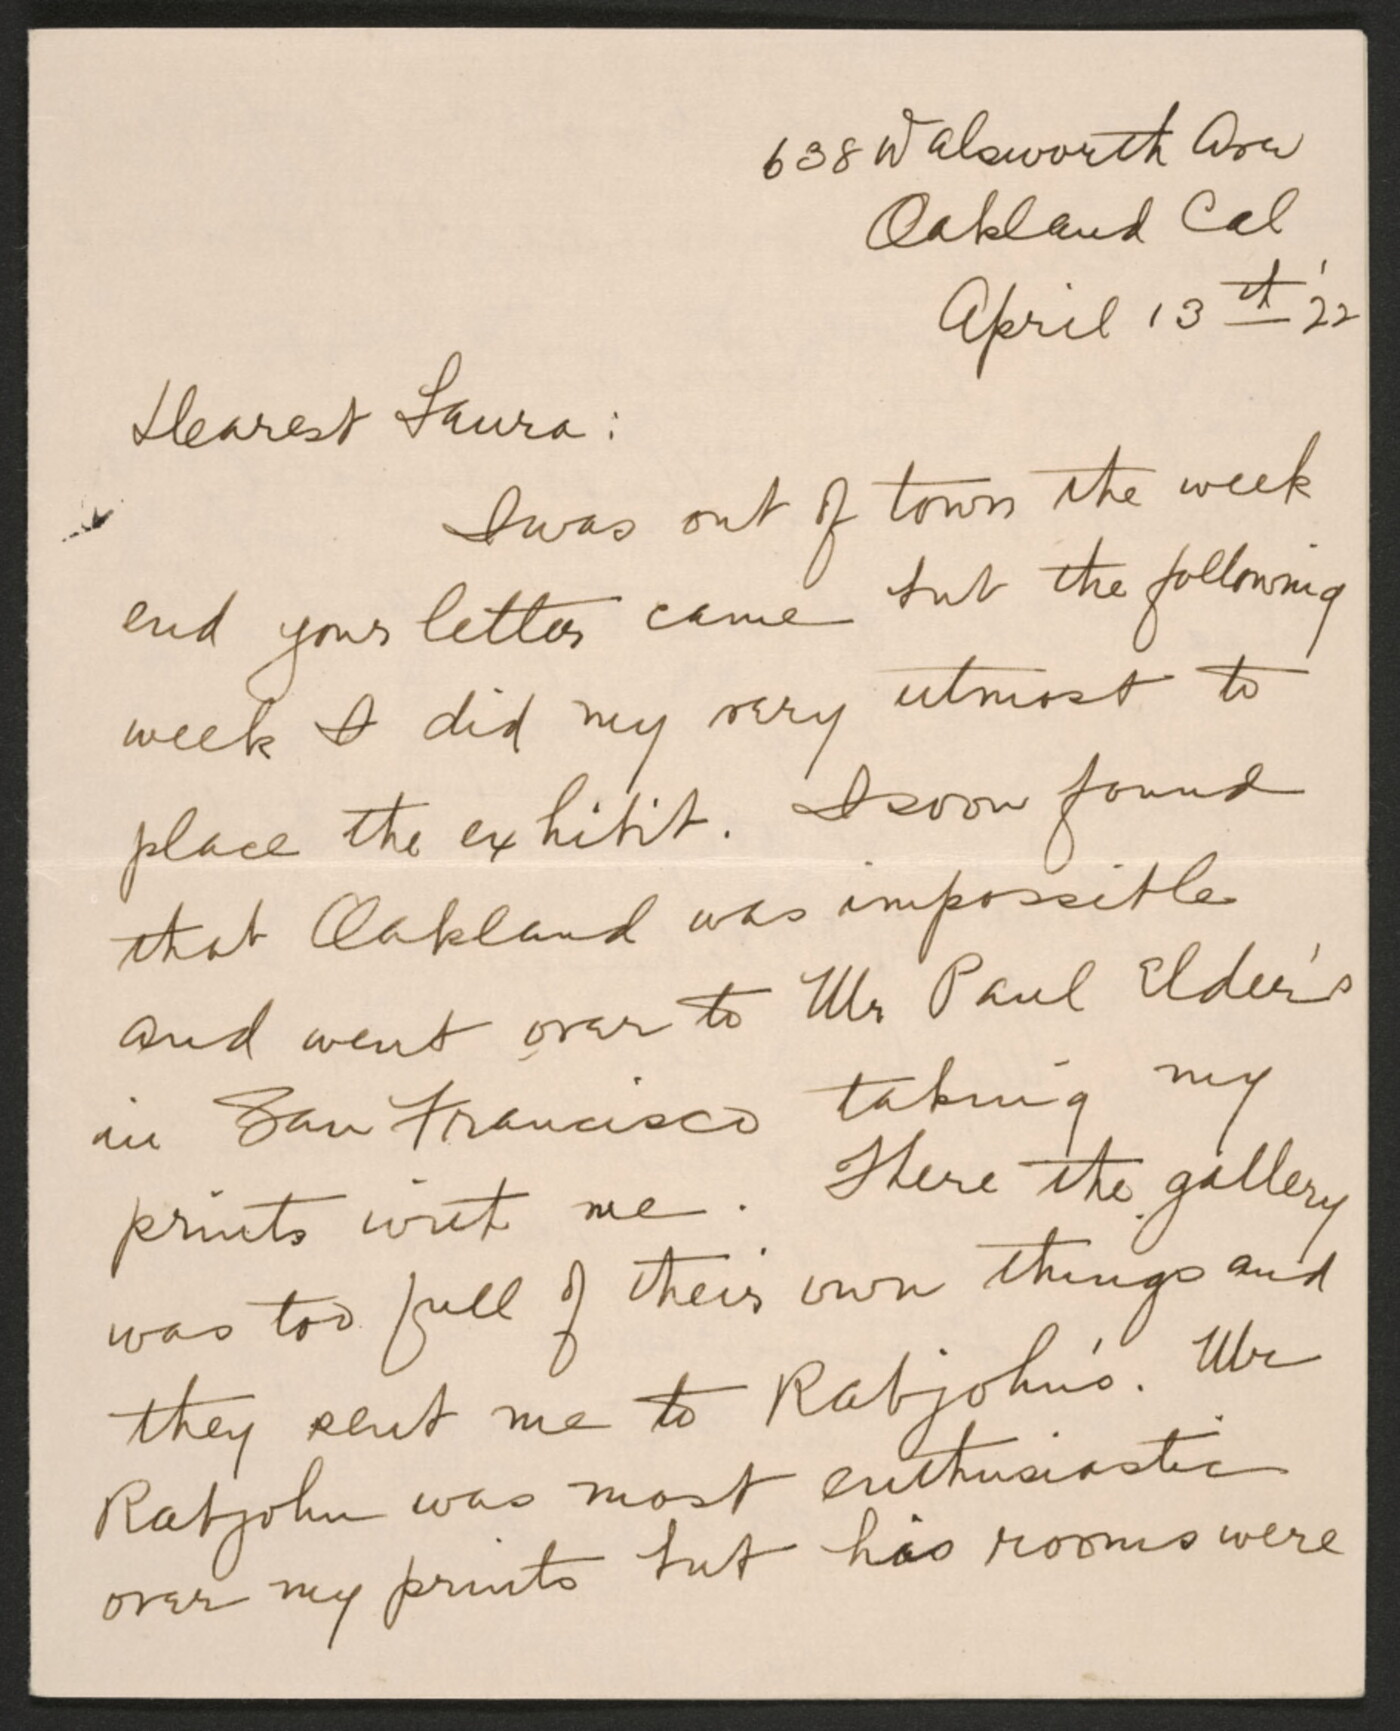 638 Walsworth Ave
Oakland Cal
April 13th '22
Dearest Laura:
I was out of town the week
end your letter came but the following
week I did my very utmost to
place the exhibit. I soon found
that Oakland was impossible
and went over to Mr Paul Elder's
in San Francisco taking my
prints with me. There the gallery
was too full of their own things and
they sent me to Rabjohn's. Mr
Rabjohn was most enthusiastic
over my prints but his rooms were